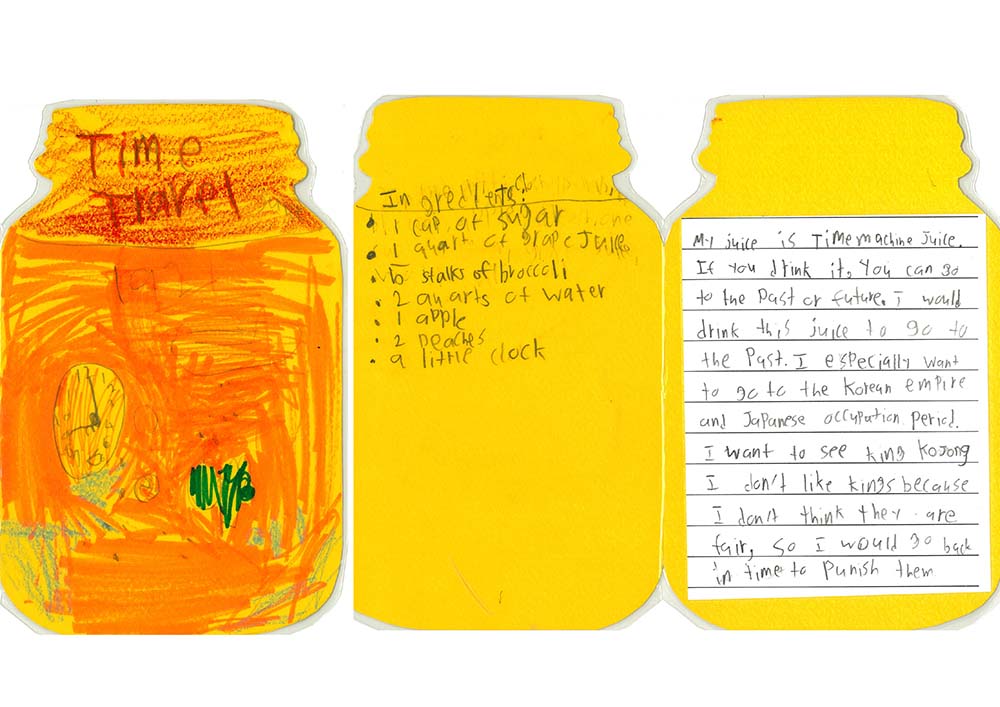 Time
Travel
Ingredients:
• 1 cup of sugar
• 1 quart of grape Juice
• stalks of broccoli
• 2 quarts of water
• 1 apple
• 2 peaches
• a little clock
My juice is Time machine Juice.
If you drink it, You can go
to the Past or future. I would
drink this juice to go to
the Past. I especially want
to go to the Korean empire
and Japanese occupation period.
I want to see king Kojong
I don't like kings because
I don't think they are
fair, so I would go back
in time to Punish them